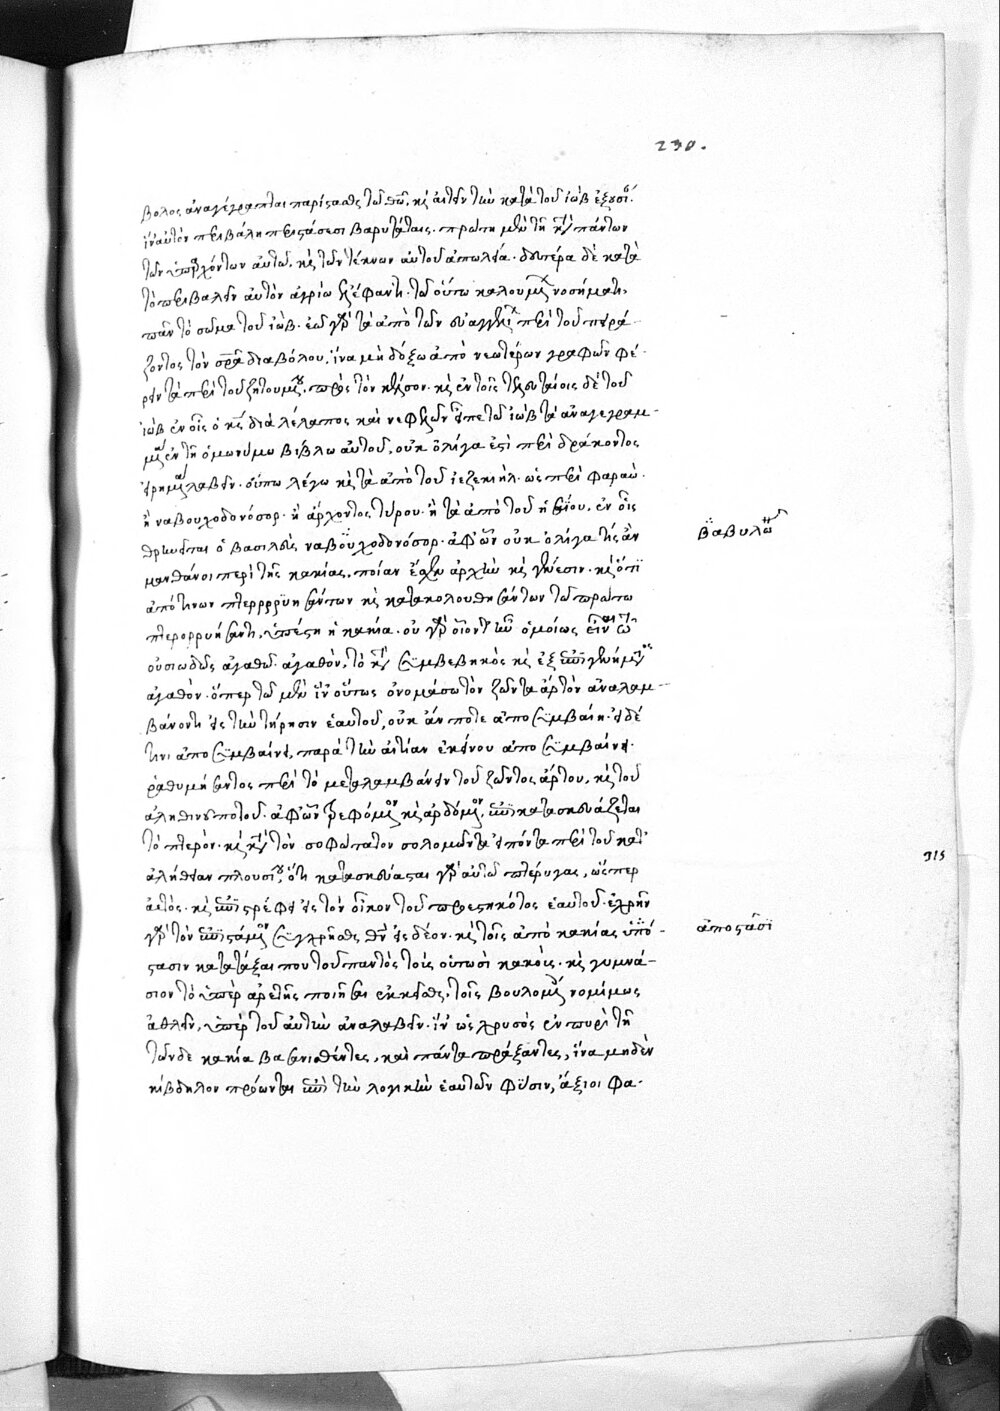 230.
βολος ἀναγέγραπται παρίστασθαι τῶ θῶ, κὶ αἰτεῖν τὴν κατὰ τοῦ ἰὼβ ἐξουσί.
ἵν' αὐτὸν περιβάλη περιστάσεσι βαρυτάταις. πρώτη μὲν τῆ κατὰ πάντων
τῶν ὑπαρχόντων αὐτῶ, κὶ τῶν τέκνων αὐτοῦ ἀπωλεία. δευτέρα δὲ κατὰ
τὸ περιβαλεῖν αὐτὸν ἀγρίω ἐλέφαντι. τῶ οὕτω καλουμένω νοσήματι,
πᾶν τὸ σῶμα τοῦ ἰώβ. ἐῶ γὰρ τὰ ἀπὸ τῶν εὐαγγελίων περὶ τοῦ πειρά-
ζοντος τὸν σρᾶ διαβόλου, ἵνα μὴ δόξω ἀπὸ νεωτέρων γραφῶν φέ-
ρειν τὰ περὶ τοῦ ζητουμένου, πρὸς τὸν κέλσον. κὶ ἐν τοῖς τελευταίοις δὲ τοῦ
ἰὼβ ἐν οἷς ὁ κς διὰ λέλαπος καὶ νεφελῶν εἶπε τῶ ἰὼβ τὰ ἀναγεγραμ-
μένα ἐν τῆ ὁμωνύμω βίβλω αὐτοῦ, οὐκ ὀλίγα ἐστὶ περὶ δράκοντος
εἰρημένα λαβεῖν. οὔπω λέγω κὶ τὰ ἀπὸ τοῦ ἰεζεκιὴλ. ὡς περὶ φαραώ.
ἢ ναβουχοδονόσορ. ἢ ἄρχοντος τύρου. ἢ τὰ ἀπὸ τοῦ ἡσαΐου. ἐν οἷς
θρηνεῖται ὁ βασιλεὺς ναβουχοδονόσορ. ἀφ' ὧν οὐκ ὀλίγα τίς ἂν
βαβυλῶ
μανθάνοι περὶ τῆς κακίας. ποίαν ἔσχεν ἀρχὴν κὶ γένεσιν. κὶ ὅτι
ἀπό τινων πτερορρυησάντων κὶ κατακολουθησάντων τῶ πρώτω
πτερορρυήσαντι, ὑπέστη ἡ κακία. οὐ γὰρ οἷόντ' ἦν ὁμοίως εἶναι τῶ
οὐσιωδῶς ἀγαθῶ. ἀγαθὸν, τὸ κατὰ συμβεβηκὸς κὶ ἐξ ἐπιγενήματος
ἀγαθὸν. ὅπερ τῶ μὲν ἵν' οὕτως ὀνομάσω τὸν ζῶντα ἄρτον ἀναλαμ-
βάνοντι εἰς τὴν τήρησιν ἑαυτοῦ, οὐκ ἄν ποτε ἀποσυμβαίη. εἰ δέ
τινι ἀποσυμβαίνει, παρὰ τὴν αἰτίαν ἐκείνου ἀποσυμβαίνει.
ῥαθυμήσαντος περὶ τὸ μεταλαμβάνειν τοῦ ζῶντος ἄρτου, κὶ τοῦ
ἀληθινοῦ ποτοῦ. ἀφ' ὧν τρεφόμενον κὶ ἀρδόμενον, ἐπικατασκευάζεται
τὸ πτερὸν. κὶ κατὰ τὸν σοφώτατον σολομῶντα εἰπόντα περὶ τοῦ κατ'
ἀλήθειαν πλουσίου, ὅτι κατασκεύασται γὰρ αὐτῶ πτέρυγας, ὥσπερ
315
ἀετὸς. κὶ ἐπιστρέφει εἰς τὸν οἶκον τοῦ προεστηκότος ἑαυτοῦ. ἐχρῆν
γὰρ τὸν ἐπιστάμενον συγχρῆσθαι θν εἰς δέον. κὶ τοῖς ἀπὸ κακίας ὑπό-
ἀποστᾶσι
στασιν κατατάξαι που τοῦ παντὸς τοὺς οὑτωσὶ κακοὺς. κὶ γυμνά-
σιον τὸ ὑπὲρ ἀρετῆς ποιῆσαι ἐκκεῖσθαι, τοῖς βουλομένοις νομίμως
ἀθλεῖν, ὑπὲρ τοῦ αὐτὴν ἀναλαβεῖν. ἵν' ὡς χρυσὸς ἐν πυρὶ τῆ
τῶνδε κακία βασανισθέντες, καὶ πάντα πράξαντες, ἵνα μηδὲν
κίβδηλον πρόωνται ἐπὶ τὴν λογικὴν ἑαυτῶν φύσιν, ἄξιοι φα-